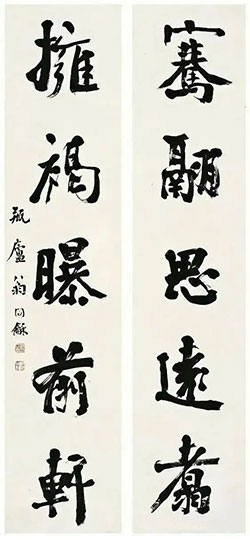 騫翮思遠翥
擁褐曝前軒
瓶廬翁同龢